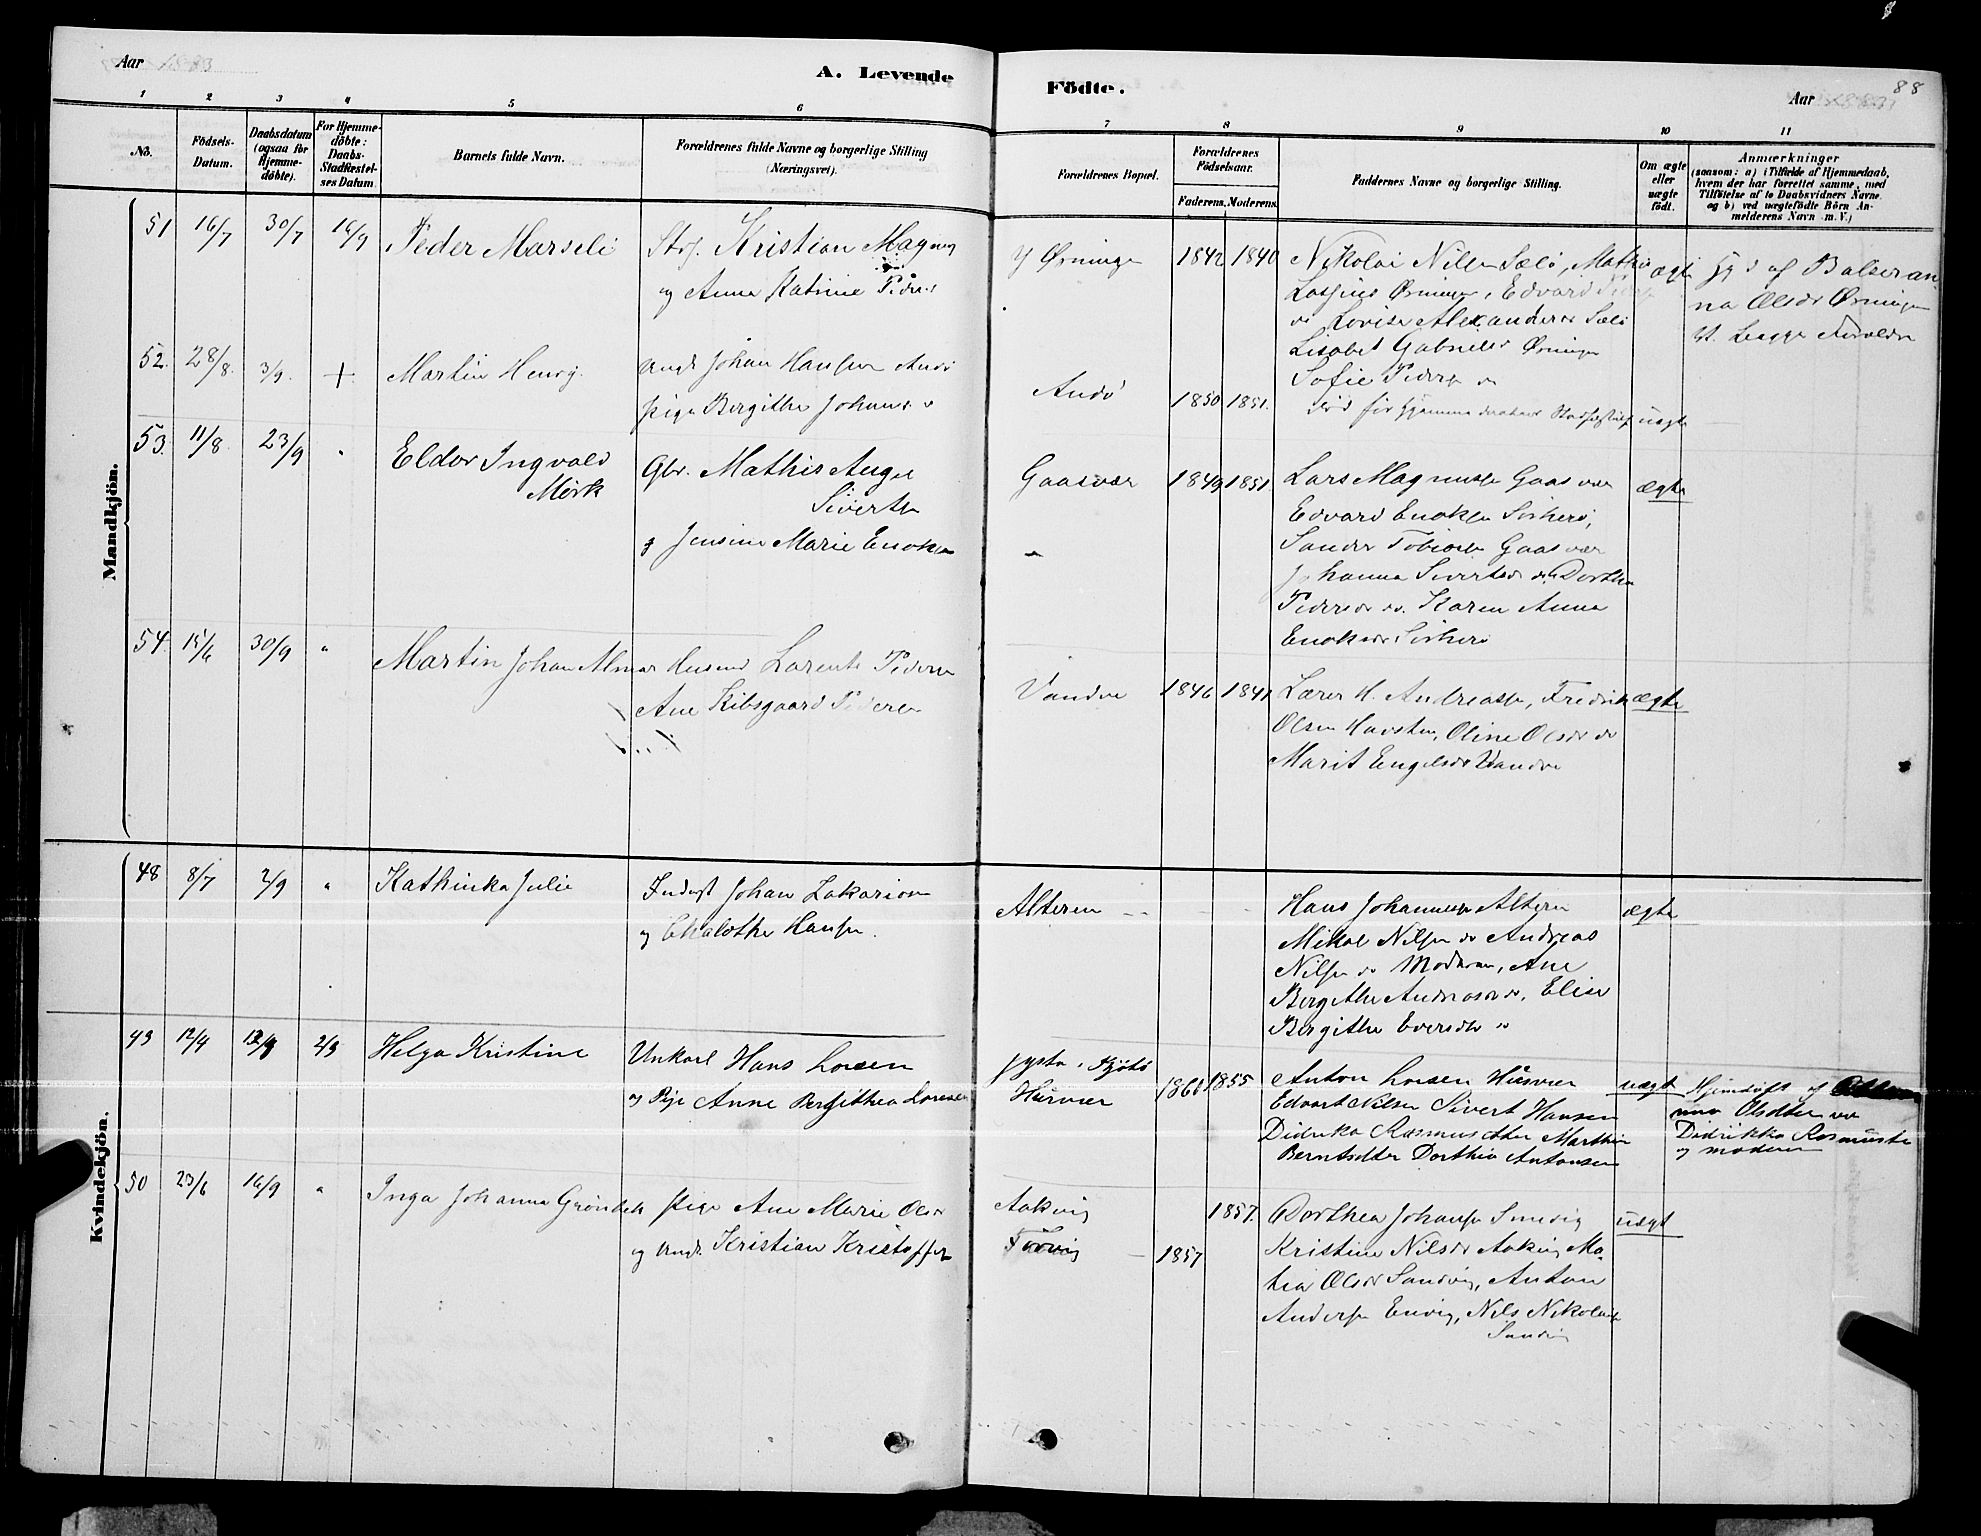 Aar 1883
A. Levende
Födte.
88
Aar 1883
1 2 3 4 5 6 7 8 9 10 11
No.
Födsels-
Datum.
Daabsdatum
(ogsaa for
Hjemme-
döbte).
For Hjemme-
döbte:
Daabs-
Stadfæstel-
ses Datum.
Barnets fulde Navn.
Forældrenes fulde Navne og borgerlige Stilling
(Næringsvei).
Forældrenes Bopæl.
Forældrenes
Födselsaar.
Faderens. Moderens.
Faddernes Navne og borgerlige Stilling.
Om ægte
eller
uægte
födt.
Anmærkninger
(saasom: a) i Tilfælde af Hjemmedaab,
hvem der har forrettet samme, med
Tilföielse af to Daabsvidners Navne
og b) ved uægtefödte Börn An-
melderens Navn m. V.)
Mandkjön.
51 16/7 30/7 16/9 Peder Marseli
Kristian Magnus
og Anna Katrine Peders
Ørningen 1842 1840
Nikolai Nilsen Sælø, Mathis
Ørningen, Edvard
Lovise Alexandersd Sælø
Lisabet Gabrielsd Ørningen
Sofie Peders do
ægte
af Balseran
na Olsdr Ørningen
52. 28/8 3/9. + Martin Henrij.
Ungk Johan Hansen Andø
pige Birgithe Johans
Andø 1850 1851.
død før hjemme daaben
uægte
53. 11/8 23/9 " Eldor Ingvald
Mørk
Gbr. Mathis Angel
Sivertsen
og Jensine Marie Enoksen
Gaasvær 1849 1851.
Lars Magnusen Gaasvær
Edvard Enoksen
Sander Tobiasen Gaasvær
Johanna Sivertsdr do Dorthea
Pedersdr do. Karen Anna
Enoksdr
ægte
54. 15/6 30/9 " Martin Johan Almar
Husmd Lorents Pedersen
Ane Kibsgaard Pedersen
Vandve 1846 1841
Lærer H. Andreasen, Fredrik
Olsen Havsten, Oline Olsdr do
Marit Engelsdr Vandve
ægte
Kvindekjön.
48 8/7 2/9 " Kathinka Julie
Inderst Johan Zakariasen
og Chalothe Hansen.
Alteren
Hans Johannesen Alteren
Mikal Nilsen do Andreas
Nilsen do Moderen, Ane
Birgithe Andreasdr do, Elise
Birgithe Eversdtr do
ægte
49 12/4 2/9 Helga Kristine
Unkarl Hans Lorsen
og Pige Anne Bergithea Lorense
Husvær 1860 1855
Anton Lorsen Husvær
Edvart Nilsen Sivert Hansen
Didrika Rasmusdtter Marthin
Berntsdtter Dorthia Antonsen
uægt
Hjemdøbt af
Olsdtter
Didrikka Rasmusdt
og moderen
50 23/6 16/9 " Inga Johanna Grønbek
Pige Ane Marie Olsd
og Ungk. Kristian Kristoffersen
Aakvig
1857.
1857
Dorthea Johansen
Kristine Nilsdr Aakvig Ma-
Olsdr Sandvig, Anton
Andersen Envig, Nils Nikolaisen
Sandvig
uægt